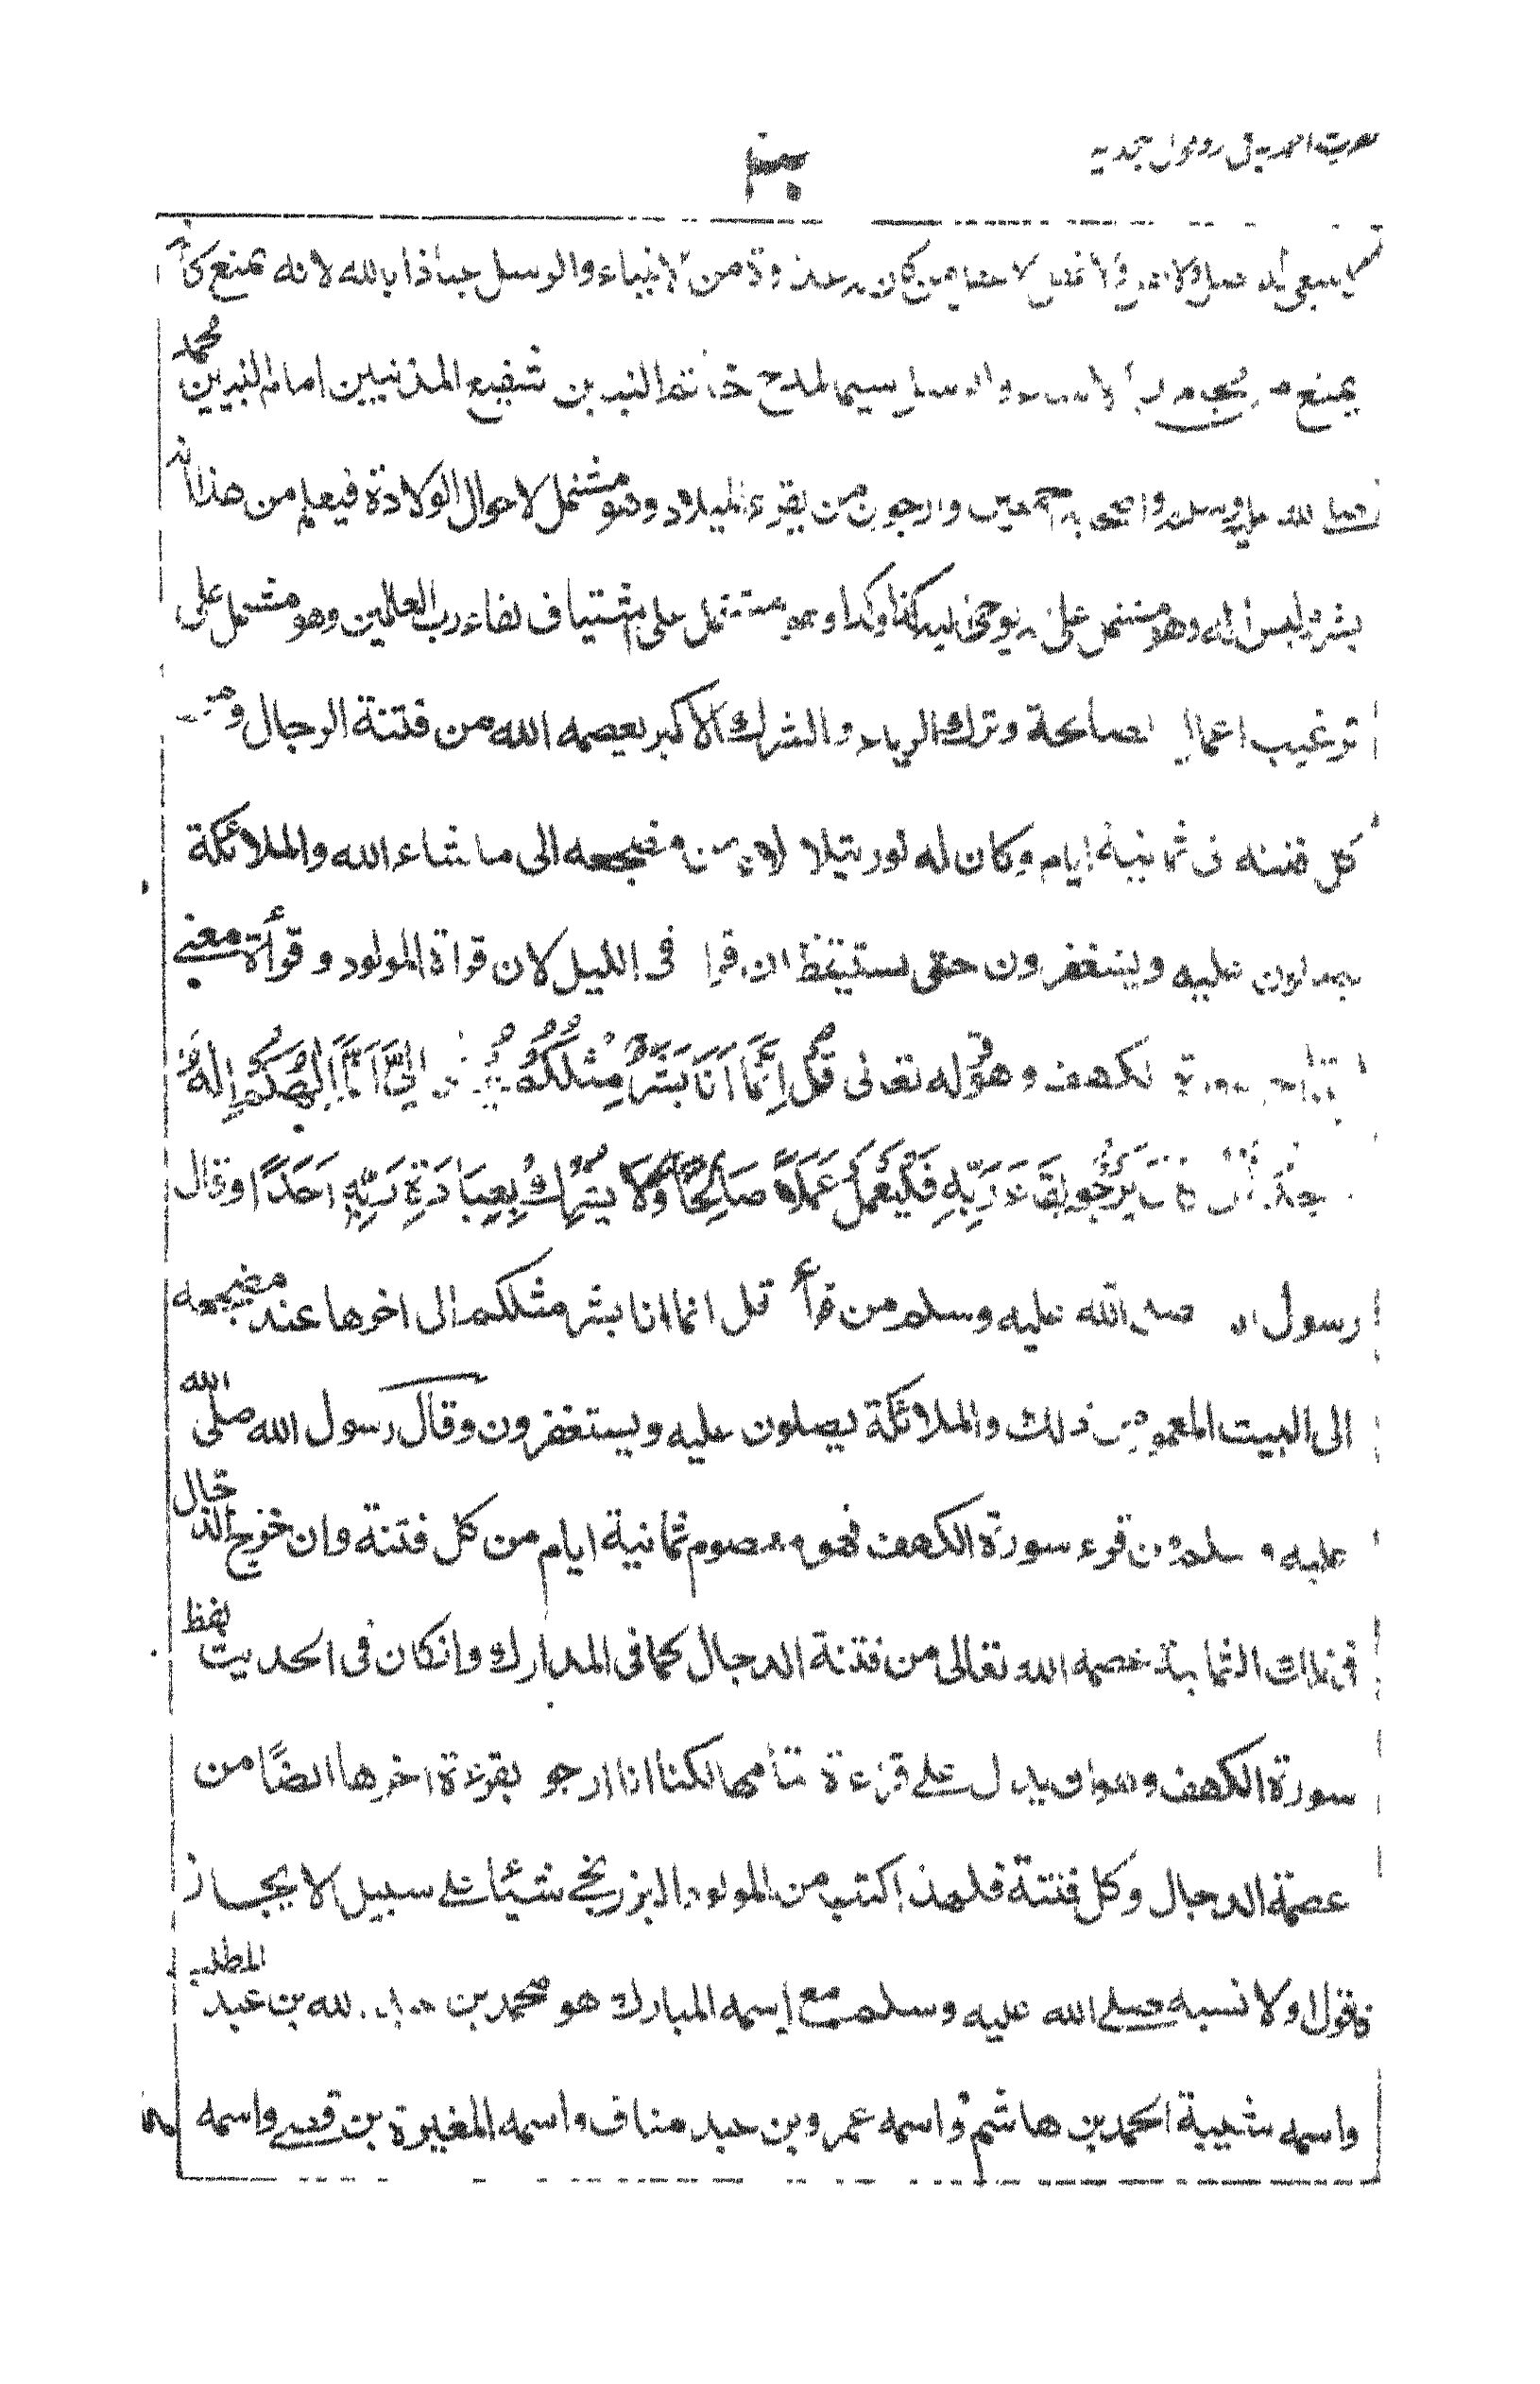 من الانبياء والرسل عياذا بالله لانه يمنع كما
يمنع سيما لمدح خاتم النبيين شفيع المذنبين امام النبيين محمد
وارجون من يقرء الميلاد وهو مشتمل لاحوال الولادة فيعلم من هذا انه
بشر ليس اله وهو مشتمل على يوحى اليه كذا وكذا وهو مشتمل على اشتياق لقاء رب العالمين وهو مشتمل على
ترغيب اعمال الصالحة وترك الرياء والشرك الاكبر يعصمه الله من فتنة الدجال ومن
كل فتنة فى ثمانية ايام وكان له نور يتلالا من مضجعه الى ما شاء الله والملائكة
يصلون عليه ويستغفرون حتى يستيقظ ان قرا فى الليل لان قراة المولود وقرأة معنى
الكهف وهو قوله تعالى قُلْ اِنَّمَا اَنَا بَشَرٌ مِثْلُكُمْ اِلَىَّ اَنَّمَا اِلٰهُكُمْ اِلٰهٌ
يَرْجُو لِقَاءَ رَبِّهِ فَلْيَعْمَلْ عَمَلًا صَالِحًا وَلَا يُشْرِكْ بِعِبَادَةِ رَبِّهِ اَحَدًا وقال
رسول الله صلى الله عليه وسلم من قرأ قل انما انا بشر مثلكم الى اخرها عند مضجعه
الى البيت المعمور من ذلك والملائكة يصلون عليه ويستغفرون وقال رسول الله صلى الله
عليه وسلم من قرء سورة الكهف فهو معصوم ثمانية ايام من كل فتنة وان خرج الدجال
فى تلك الثمانية عصمه الله تعالى من فتنة الدجال كما فى المدارك وانكان فى الحديث لفظ
سورة الكهف وهو يدل على قرءة تمامها لكنا انا ارجو بقرءة اخرها ايضًا من
عصمة الدجال وكل فتنة فلهذا اكتب من المولود البرزنجى شيئا على سبيل الايجاز
فنقول اولا نسبه صلى الله عليه وسلم مع اسمه المبارك هو محمد بن عبد الله بن عبد المطلب
واسمه شيبة الحمد بن هاشم واسمه عمرو بن عبد مناف واسمه المغيرة بن قصى واسمه